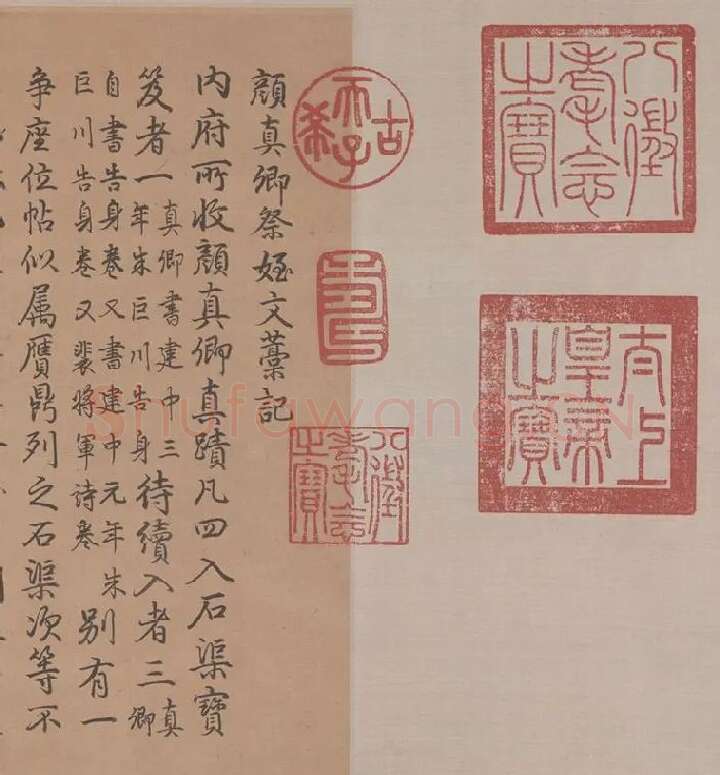 八徵耄念之寶
太上皇帝之寶
古希天子
壽
八徵耄念之寶
顏真卿祭姪文藁記
內府所收顏真卿真蹟凡四入石渠寶
笈者一真卿書建中三年朱巨川告身待續入者三真卿
自書告身卷又書建中元年朱巨川告身卷又裴將軍诗卷別有一
爭座位帖似属贋鼎列之石渠次等不